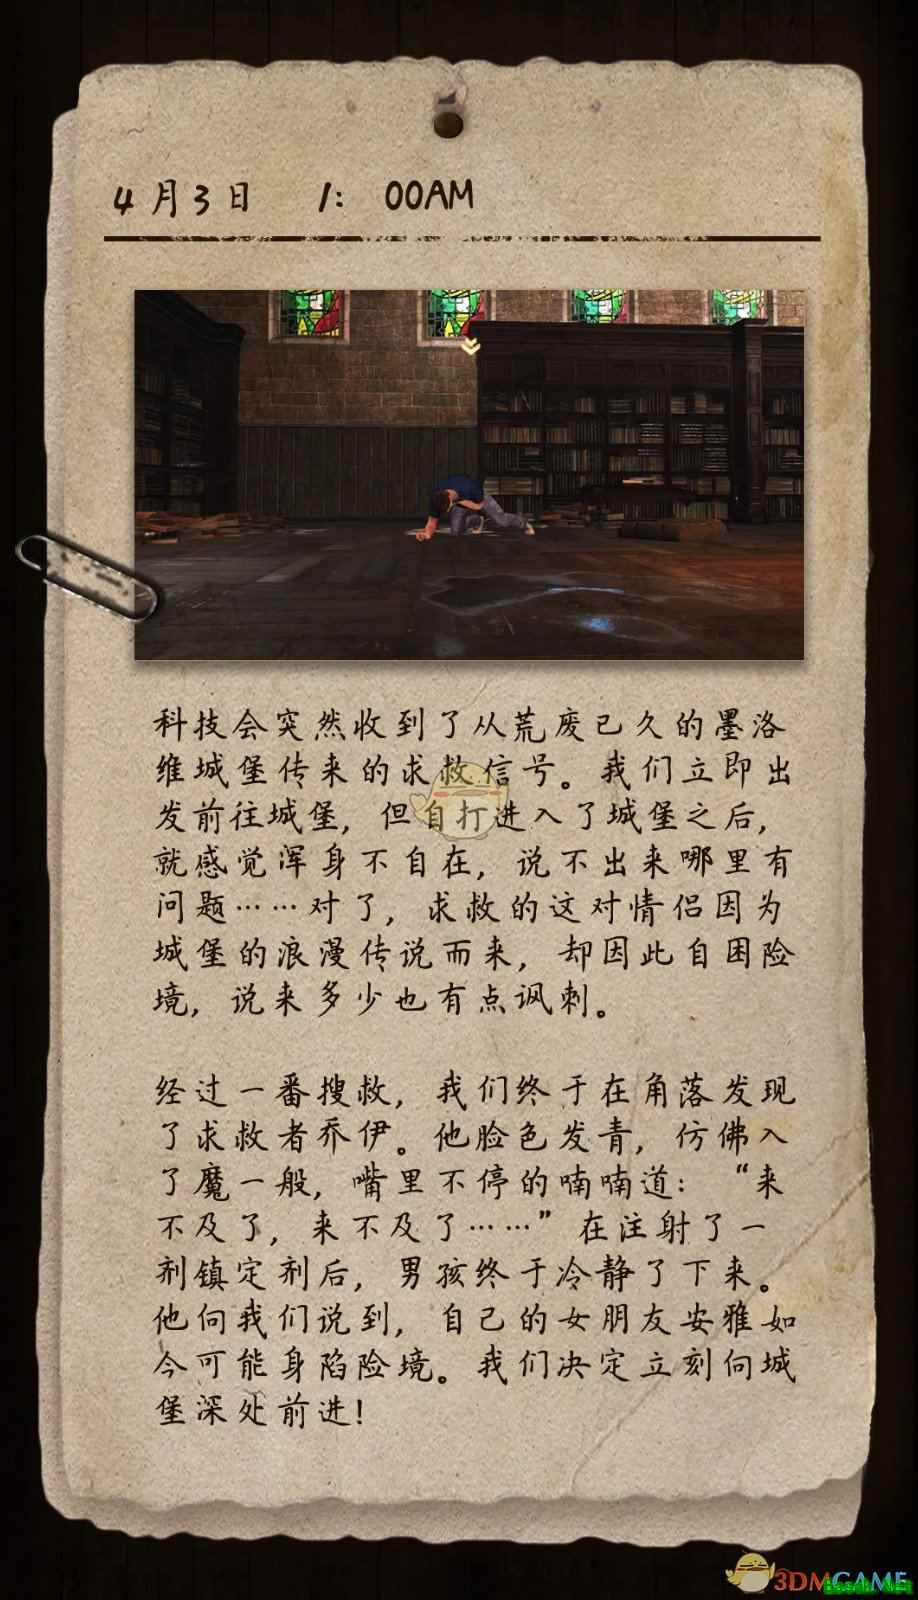 4月3日 1: 00AM
科技会突然收到了从荒废已久的墨洛
维城堡传来的求救信号。我们立即出
发前往城堡，但自打进入了城堡之后，
就感觉浑身不自在，说不出来哪里有
问题……对了，求救的这对情侣因为
城堡的浪漫传说而来，却因此自困险
境，说来多少也有点讽刺。
经过一番搜救，我们终于在角落发现
了求救者乔伊。他脸色发青，仿佛入
了魔一般，嘴里不停的喃喃道：“来
不及了，来不及了……”在注射了一
剂镇定剂后，男孩终于冷静了下来。
他向我们说到，自己的女朋友安雅如
今可能身陷险境。我们决定立刻向城
堡深处前进！
3DMGAME